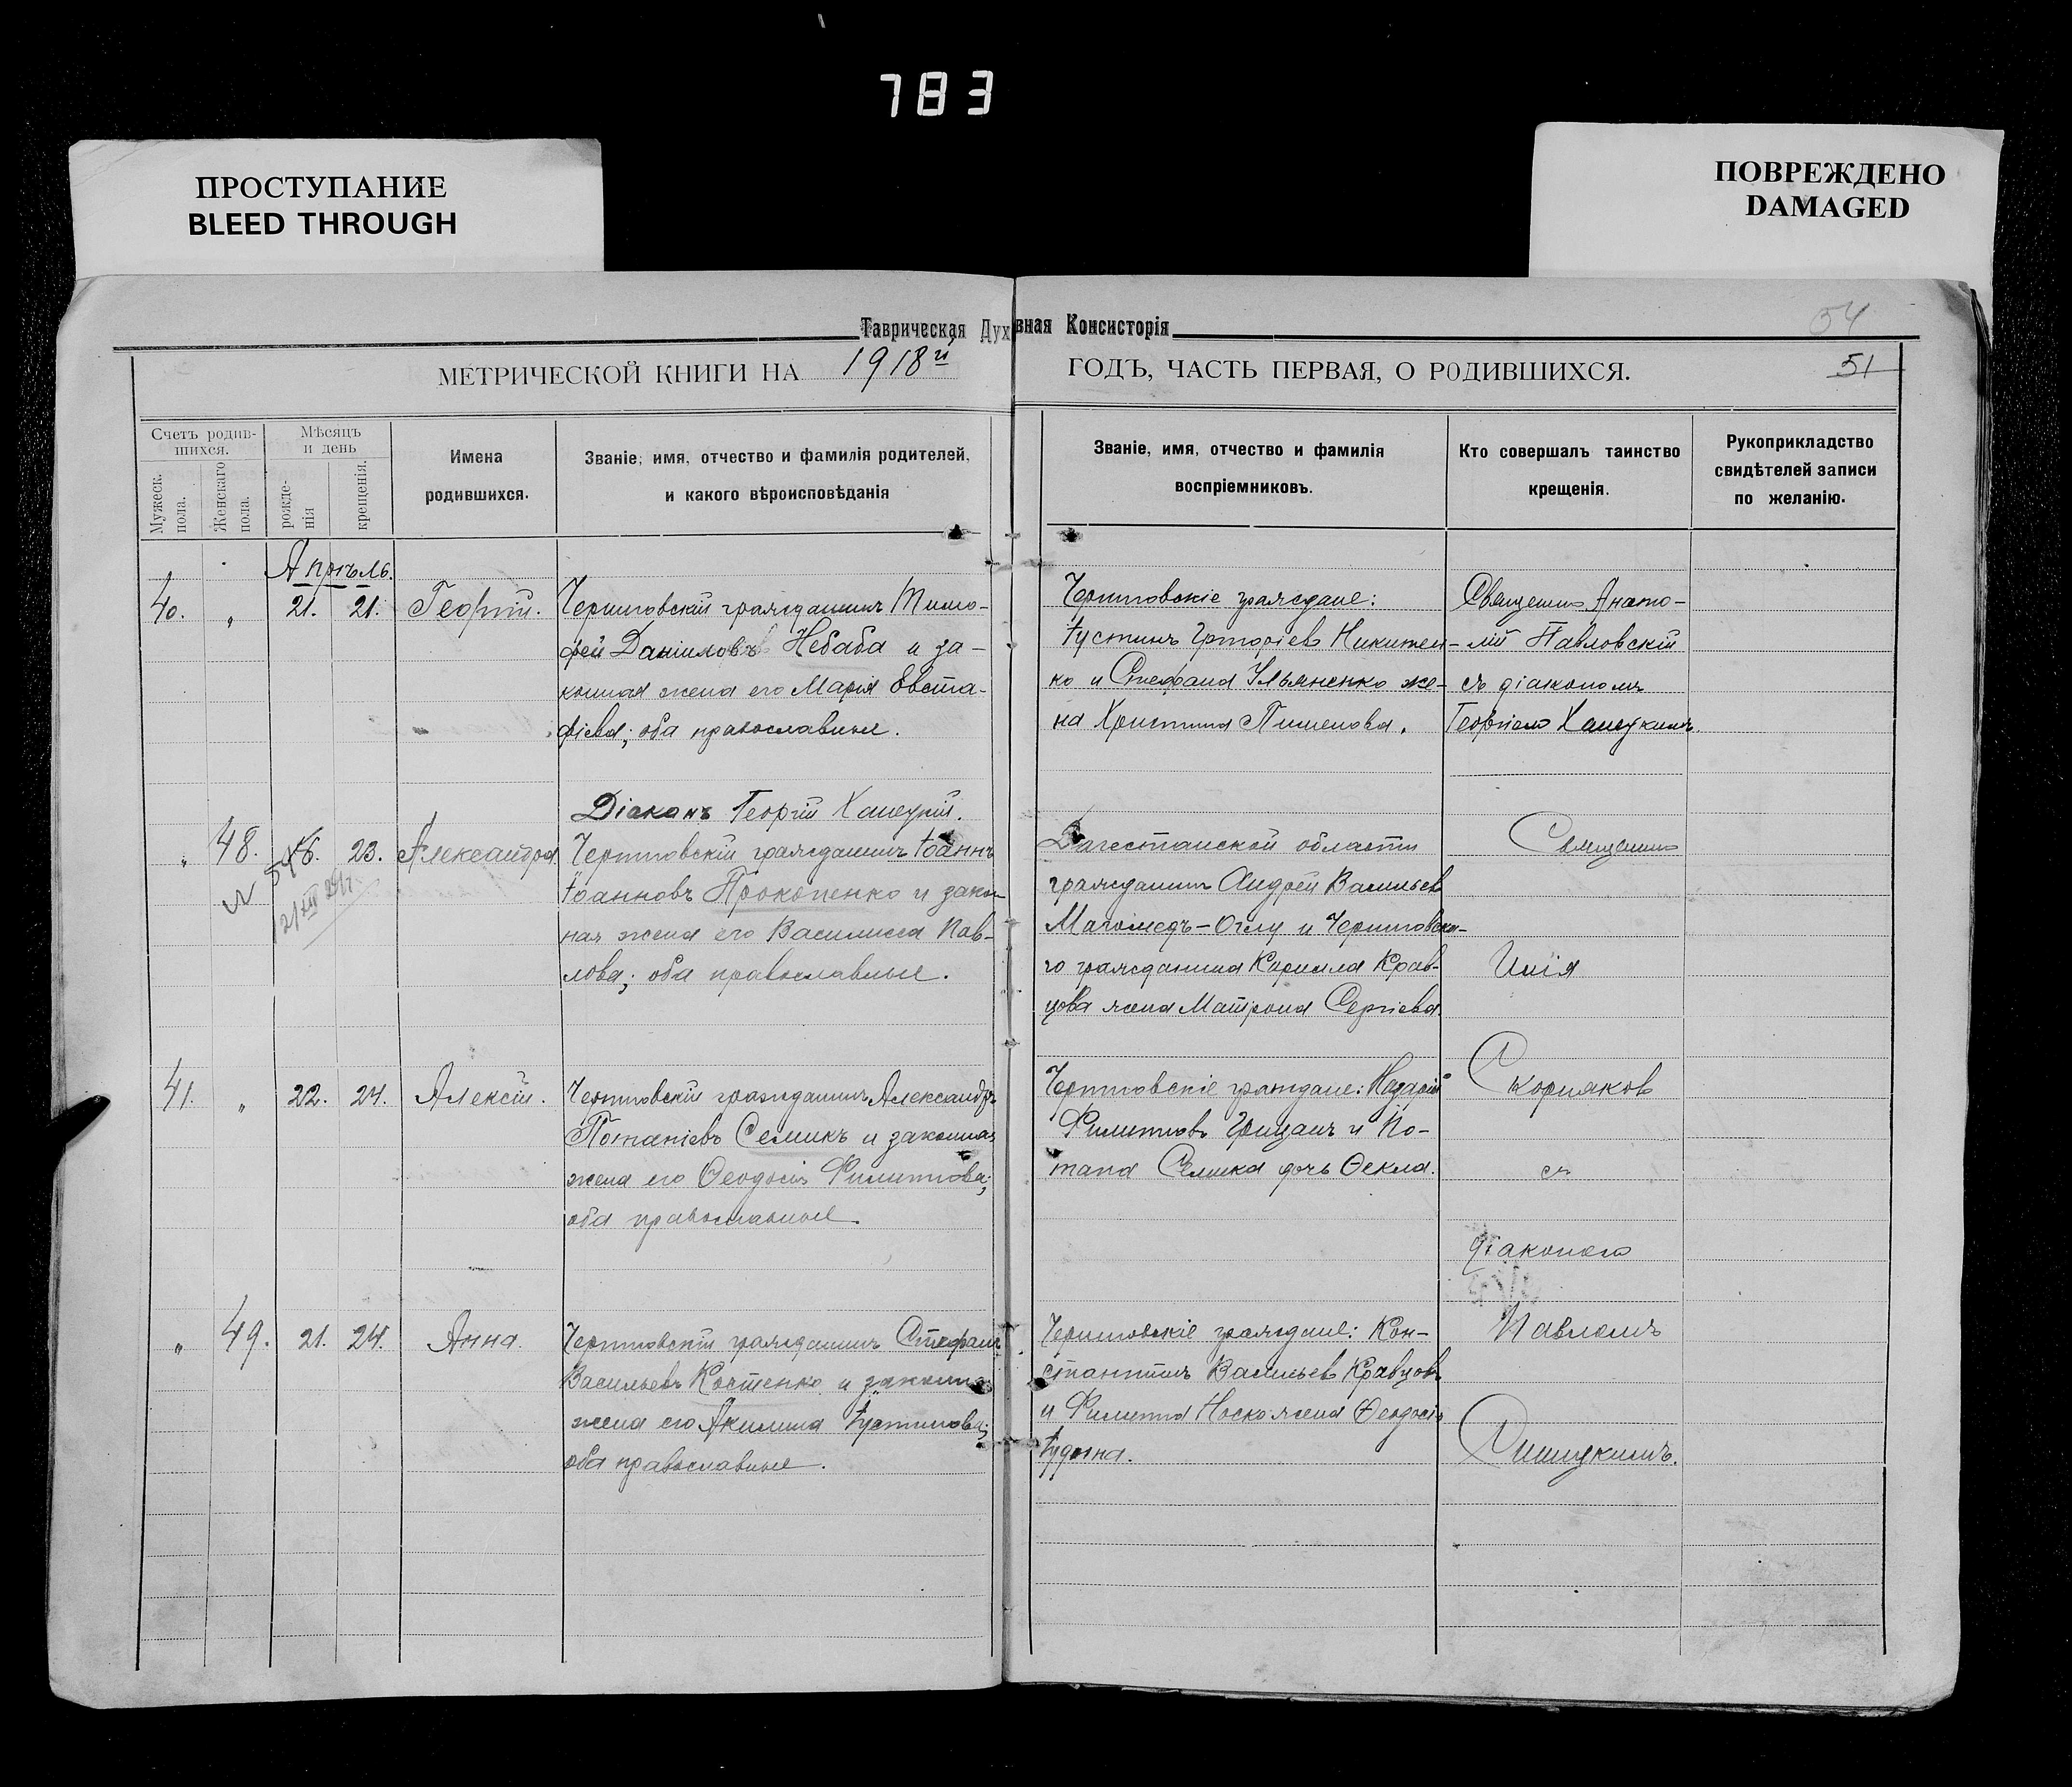 783
ПРОСТУПАНИЕ
BLEED THROUGH
ПОВРЕЖДЕНО
DAMAGED
Таврическая Дух вная Консисторія
54
МЕТРИЧЕСКОЙ КНИГИ НА 1918й ГОДЪ, ЧАСТЬ ПЕРВАЯ, О РОДИВШИХСЯ.
51
Счетъ родив-
шихся.
Мужеск.
пола.
Женскаго
пола.
Мѣсяцъ
и день
рожде-
нія
крещенія.
Имена
родившихся.
Званіе, имя, отчество и фамилія родителей,
и какого вѣроисповѣданія
Званіе, имя, отчество и фамилія
воспріемниковъ.
Кто совершалъ таинство
крещенія.
Рукоприкладство
свидѣтелей записи
по желанію.
Апрѣль.
40. " 21. 21. Георгій.
гражданинъ Тимо-
фей Даніиловъ Небаба и за-
конная жена его Марія Евста-
фіева; оба православные.
граждане:
Іустинъ Григоріев Никитен-
ко и Стефана Ульяненко же-
на Христина Пименова.
Священник Анато-
лій Павловскій
съ діакономъ
Георгіем
Діаконъ Георгій
" 48. 23. Александра.
гражданинъ Іоаннъ
Іоанновъ Прокопенко и закон-
ная жена его Василисса Пав-
лова; оба православные.
Дагестанской области
гражданин Андрей Васильев
Магомедъ-Оглу и
го гражданина Кирилла Крав-
цова жена Матрона Сергіева.
Священник
Илія
Скорняков
съ
діаконом
Павломъ
41. " 22. 24. Алексій.
гражданинъ Александръ
Потапіевъ Семикъ и законная
жена его Феодосія Филиппова;
оба православные.
граждане: Назарій
Филиппов Грицан и По-
тапа Семика дочь Ѳекла.
" 49. 21. 24. Анна.
гражданинъ Стефанъ
Васильевъ Костенко и законная
жена его Акилина Іустинова;
оба православные.
граждане: Кон-
стантинъ Васильев Кравцовъ
и Филиппа Носко жена Ѳеодосія